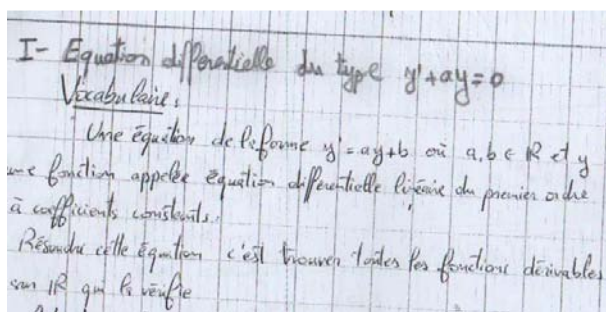 I- Equation différentielle du type y'+ay=0
Vocabulaire:
Une équation de la forme y'=ay+b où a,b ∈ R et y
une fonction appelée équation différentielle linéaire du premier ordre
à coefficients constants.
Résoudre cette équation c'est trouver toutes les fonctions dérivables
sur IR qui la vérifie